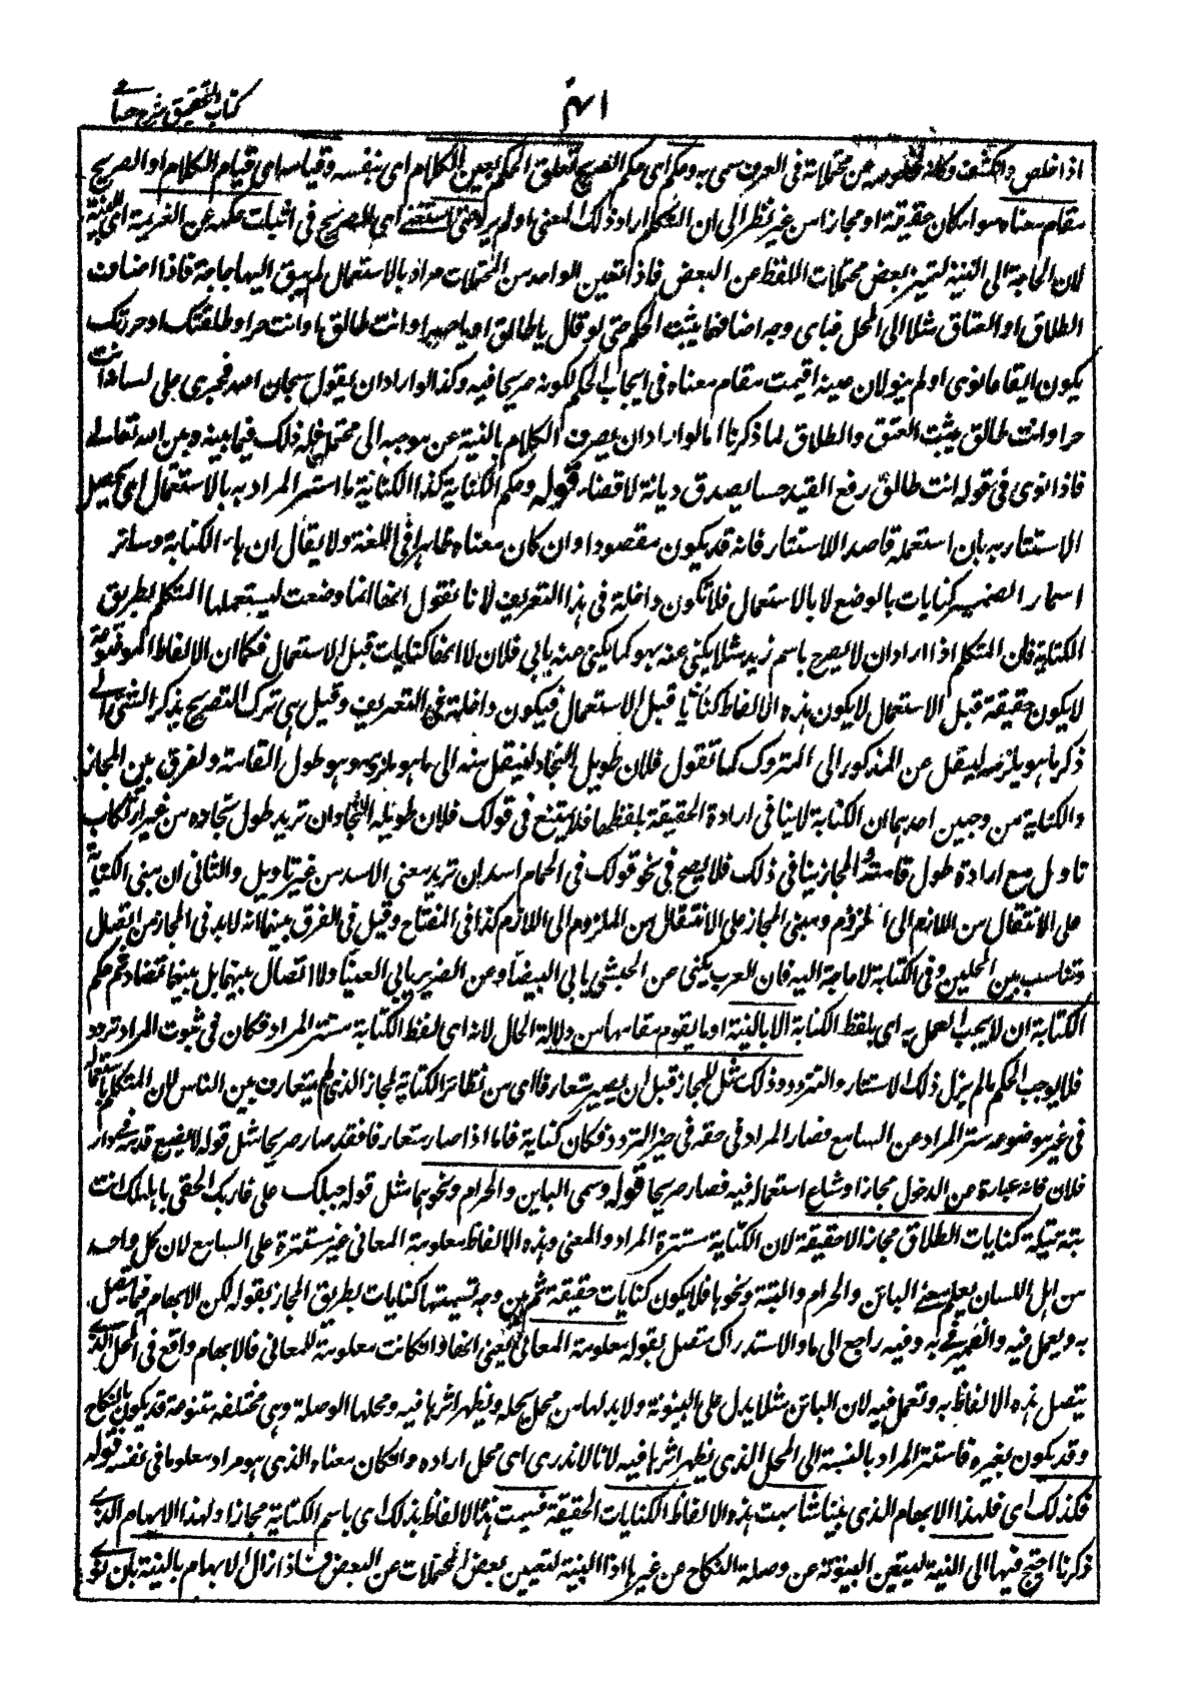 كتاب التحقيق شرح حسامى
اذا خلص وانكشف وكانه لخلوصه عن محتملاته فى العرف سمى به وحكمه اى حكم الصريح تعلق الحكم بعين الكلام اى بنفسه وقيامه اى قيام الكلام او الصريح
مقام معناه سواء كان حقيقة او مجازا من غير نظر الى ان المتكلم اراد ذلك المعنى او لم يرد حتى استغنى اى الصريح فى اثبات حكمه عن العزيمة اى النية
لان الحاجة الى النية لتميز بعض محتملات اللفظ عن البعض فاذا تعين الواحد من المحتملات مرادا بالاستعمال لم يبق اليها حاجة فاذا اضاف
الطلاق او العتاق مثلا الى المحل فباى وجه اضافها يثبت الحكم حتى لو قال يا طالق او يا حر او انت طالق او انت حر او طلقتك او حررتك
يكون ايقاعا نوى او لم ينو لان عينه اقيمت مقام معناه فى ايجاب الحكم لكونه صريحا فيه وكذا لو اراد ان يقول سبحان الله فجرى على لسانه انت
حر او انت طالق يثبت العتق والطلاق لما ذكرنا اما لو اراد ان يصرف الكلام بالنية عن موجبه الى محتمله فله ذلك فيما بينه وبين الله تعالى
فاذا نوى فى قوله انت طالق رفع القيد حسا يصدق ديانة لا قضاء قوله وحكم الكناية كذا الكناية ما استتر المراد به بالاستعمال اى يحصل
الاستتار به بان استعمله قاصدا للاستتار فانه قد يكون مقصودا وان كان معناه ظاهرا فى اللغة ولا يقال ان هاء الكناية وسائر
اسماء الضمير كنايات بالوضع لا بالاستعمال فلا تكون داخلة فى هذا التعريف لانا نقول انها انما وضعت ليستعملها المتكلم بطريق
الكناية فان المتكلم اذا اراد ان لا يصرح باسم زيد مثلا يكنى عنه بهو كما يكنى عنه بابى فلان لا انها كنايات قبل الاستعمال فكما ان الالفاظ الموضوعة
لا يكون حقيقة قبل الاستعمال لا يكون هذه الالفاظ كنايات قبل الاستعمال فيكون داخلة فى التعريف وقيل هى ترك التصريح بذكر الشئ الى
ذكر ما هو يلزمه لينتقل من المذكور الى المتروك كما تقول فلان طويل النجاد لينتقل منه الى ما هو ملزومه وهو طول القامة والفرق بين المجاز
والكناية من وجهين احدهما ان الكناية لا ينافى ارادة الحقيقة بلفظها فلا يمتنع فى قولك فلان طويل النجاد ان تريد طول نجاده من غير ارتكاب
تاويل مع ارادة طول قامته والمجاز ينافى ذلك فلا يصح فى نحو قولك فى الحمام اسد ان تريد معنى الاسد من غير تاويل والثانى ان مبنى الكناية
على الانتقال من اللازم الى الملزوم ومبنى المجاز على الانتقال من الملزوم الى اللازم كذا فى المفتاح وقيل فى الفرق بينهما انه لا بد فى المجاز من اتصال
وتناسب بين المحلين وفى الكناية لا حاجة اليه فان العرب يكنى عن الحبشى بابى البيضاء وعن الضرير بابى العيناء ولا اتصال بينهما بل بينهما تضاد ثم حكم
الكناية ان لا يجب العمل به اى بلفظ الكناية الا بالنية او ما يقوم مقامها من دلالة الحال لانه اى لفظ الكناية مستتر المراد فكان فى ثبوت المراد تردد
فلا يوجب الحكم ما لم يزل ذلك الاستتار والتردد وذلك مثل المجاز قبل ان يصير متعارفا اى من نظائر الكناية المجاز الذى لم يتعارف بين الناس لان المتكلم باستعماله
فى غير موضوعه ستر المراد عن السامع فصار المراد فى حقه فى حيز التردد فكان كناية فاما اذا صار متعارفا فقد صار صريحا مثل قوله لا يضع قدمه فى دار
فلان فانه عبارة عن الدخول مجازا وشاع استعماله فيه فصار صريحا قوله وسمى البائن والحرام ونحوهما مثل قوله حبلك على غاربك الحقى باهلك انت
بتة بتلة كنايات الطلاق مجازا لا حقيقة لان الكناية مستترة المراد والمعنى وهذه الالفاظ معلومة المعانى غير مستترة على السامع لان كل واحد
من اهل اللسان يعلم معنى البائن والحرام والبتة ونحوها فلا يكون كنايات حقيقة ثم بين وجه تسميتها كنايات بطريق المجاز بقوله لكن الابهام فيما يتصل
به ويعمل فيه والضمير فى به وفيه راجع الى ما والاستدراك متصل بقوله معلومة المعانى يعنى انها وان كانت معلومة المعانى فالابهام واقع فى المحل الذى
يتصل هذه الالفاظ به وتعمل فيه لان البائن مثلا يدل على البينونة ولا بد لها من محل يحله ويظهر اثرها فيه ومحلها الوصلة وهى مختلفة متنوعة قد يكون بالنكاح
وقد يكون بغيره فاستتر المراد بالنسبة الى المحل الذى يظهر اثرها فيه لانا لا ندرى اى محل اراده وان كان معناه الذى هو مراد معلوما فى نفسه قوله
فلذلك اى فلهذا الابهام الذى بينا شابهت هذه الالفاظ الكنايات الحقيقة فسميت هذه الالفاظ بذلك اى باسم الكناية مجازا ولهذا الابهام الذى
ذكرنا احتج فيها الى النية ليتعين البينونة عن وصلة النكاح عن غيرها اذ النية لتعيين بعض المحتملات عن البعض فاذا زال الابهام بالنية بان نوى